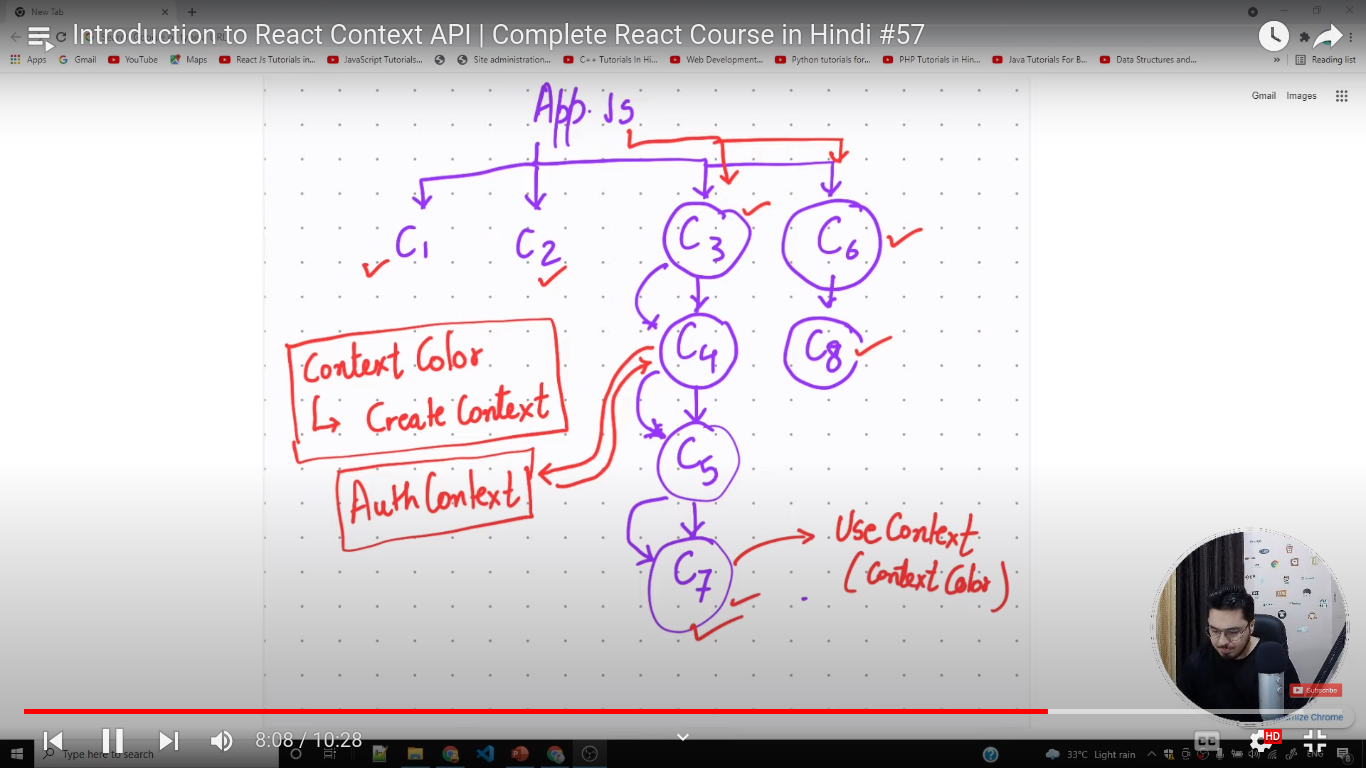 New Tab
Introduction to React Context API | Complete React Course in Hindi #57
Apps
Gmail
YouTube
Maps
React Js Tutorials in...
JavaScript Tutorials...
Site administration...
C++ Tutorials In Hi...
Web Development...
Python tutorials for...
PHP Tutorials in Hin...
Java Tutorials For B...
Data Structures and...
»
Reading list
Gmail Images
App. Js
C1
C2
C3
C6
C4
C8
Context Color
↳ Create Context
C5
Auth Context
Use Context
C7
(Context Color)
Subscribe
Chrome
8:08 / 10:28
CC
HD
Type here to search
33°C Light rain
ENG